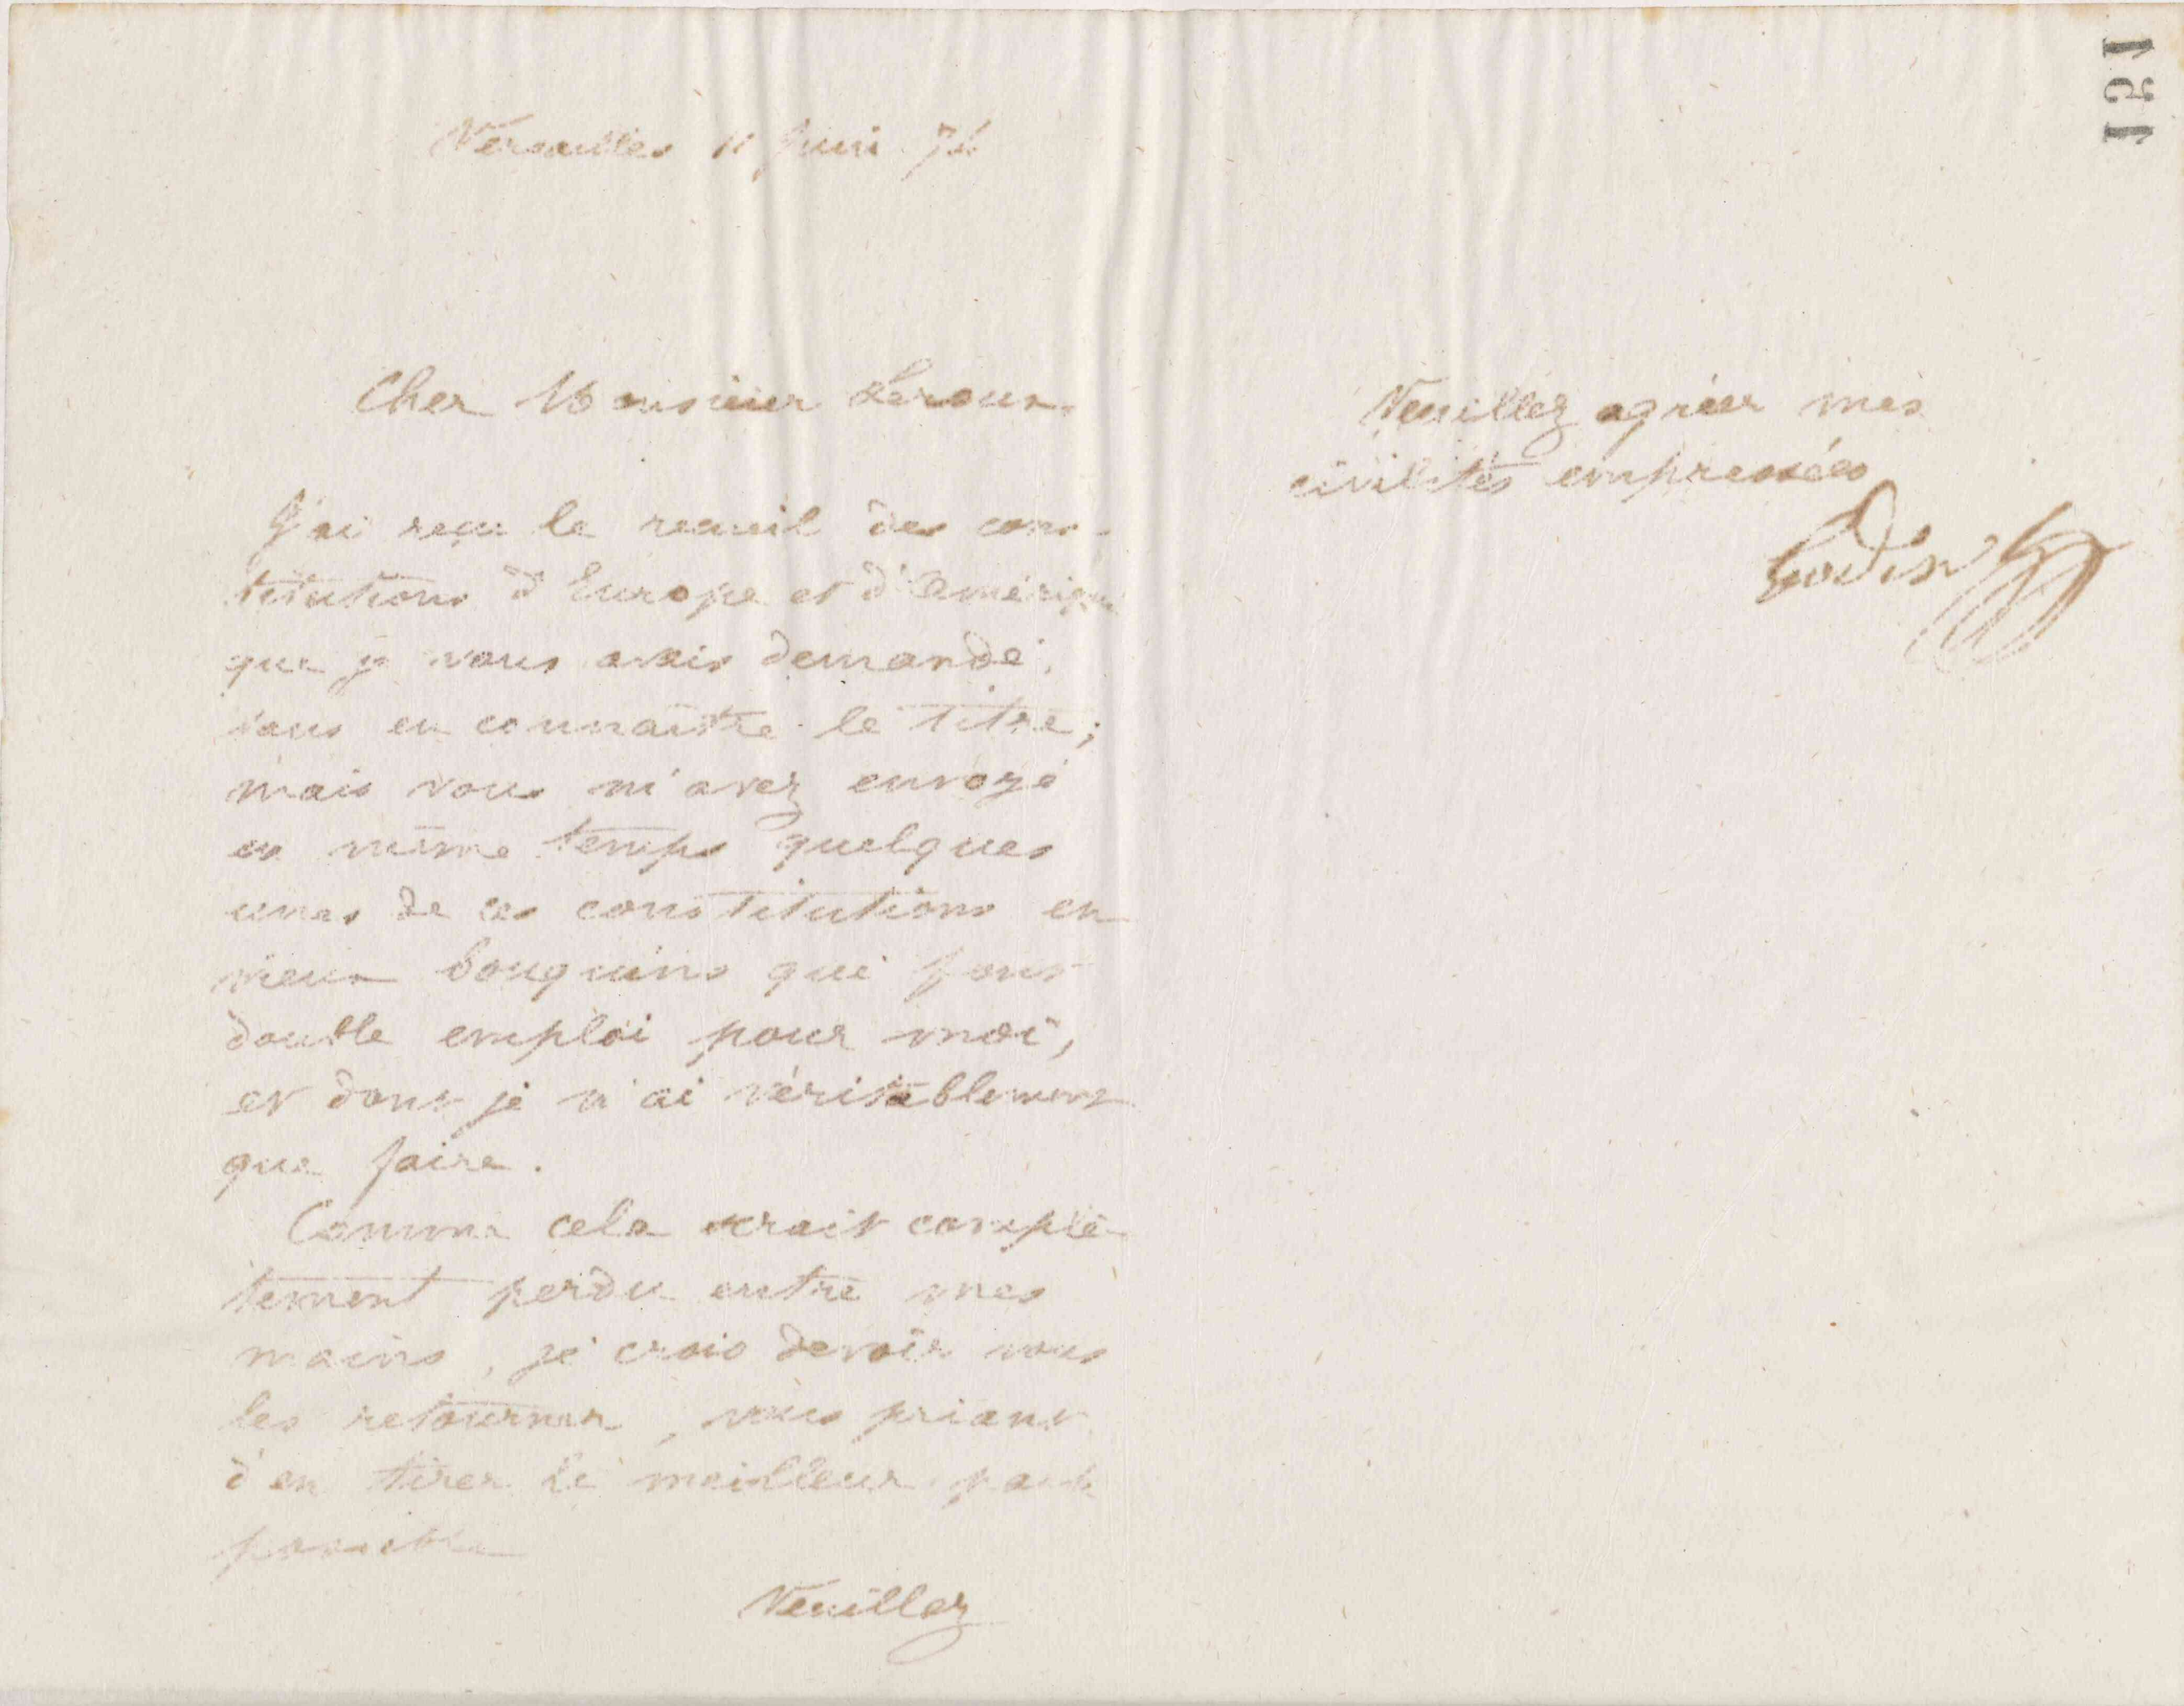 151
Versailles 11 Juin 74
Cher Monsieur Leroux
J'ai reçu le recueil des cons-
titutions d'Europe et d'Amérique
que je vous avais demandé,
sans en connaître le titre;
mais vous m'avez envoyé
en même temps quelques
unes de ces constitutions en
vieux bouquins qui font
double emploi pour moi,
et dont je n'ai véritablement
que faire.
Comme cela serait complè-
tement perdu entre mes
mains, je crois devoir vous
les retourner, vous priant
d'en tirer le meilleur parti
possible
Veuillez
Veuillez agréer mes
civilités empressées
Godin